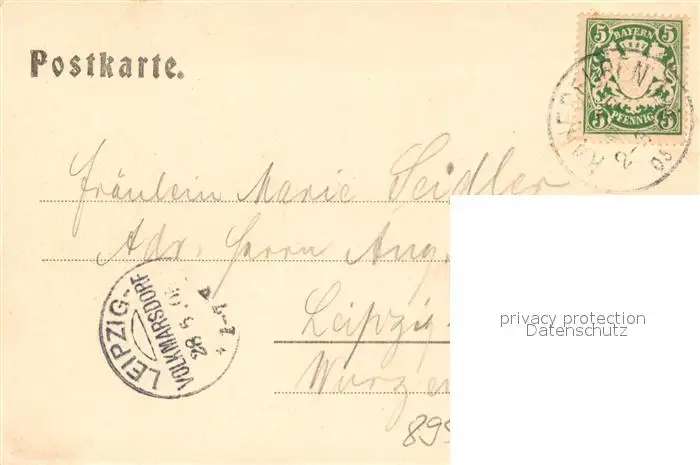 Postkarte.
5 BAYERN 5
5 PFENNIG 5
Fräulein Marie Seidler
Adr. Herrn Aug
Leipzig-
Wurzen
LEIPZIG-
VOLKMARSDORF
28 5
privacy protection
Datenschutz
895